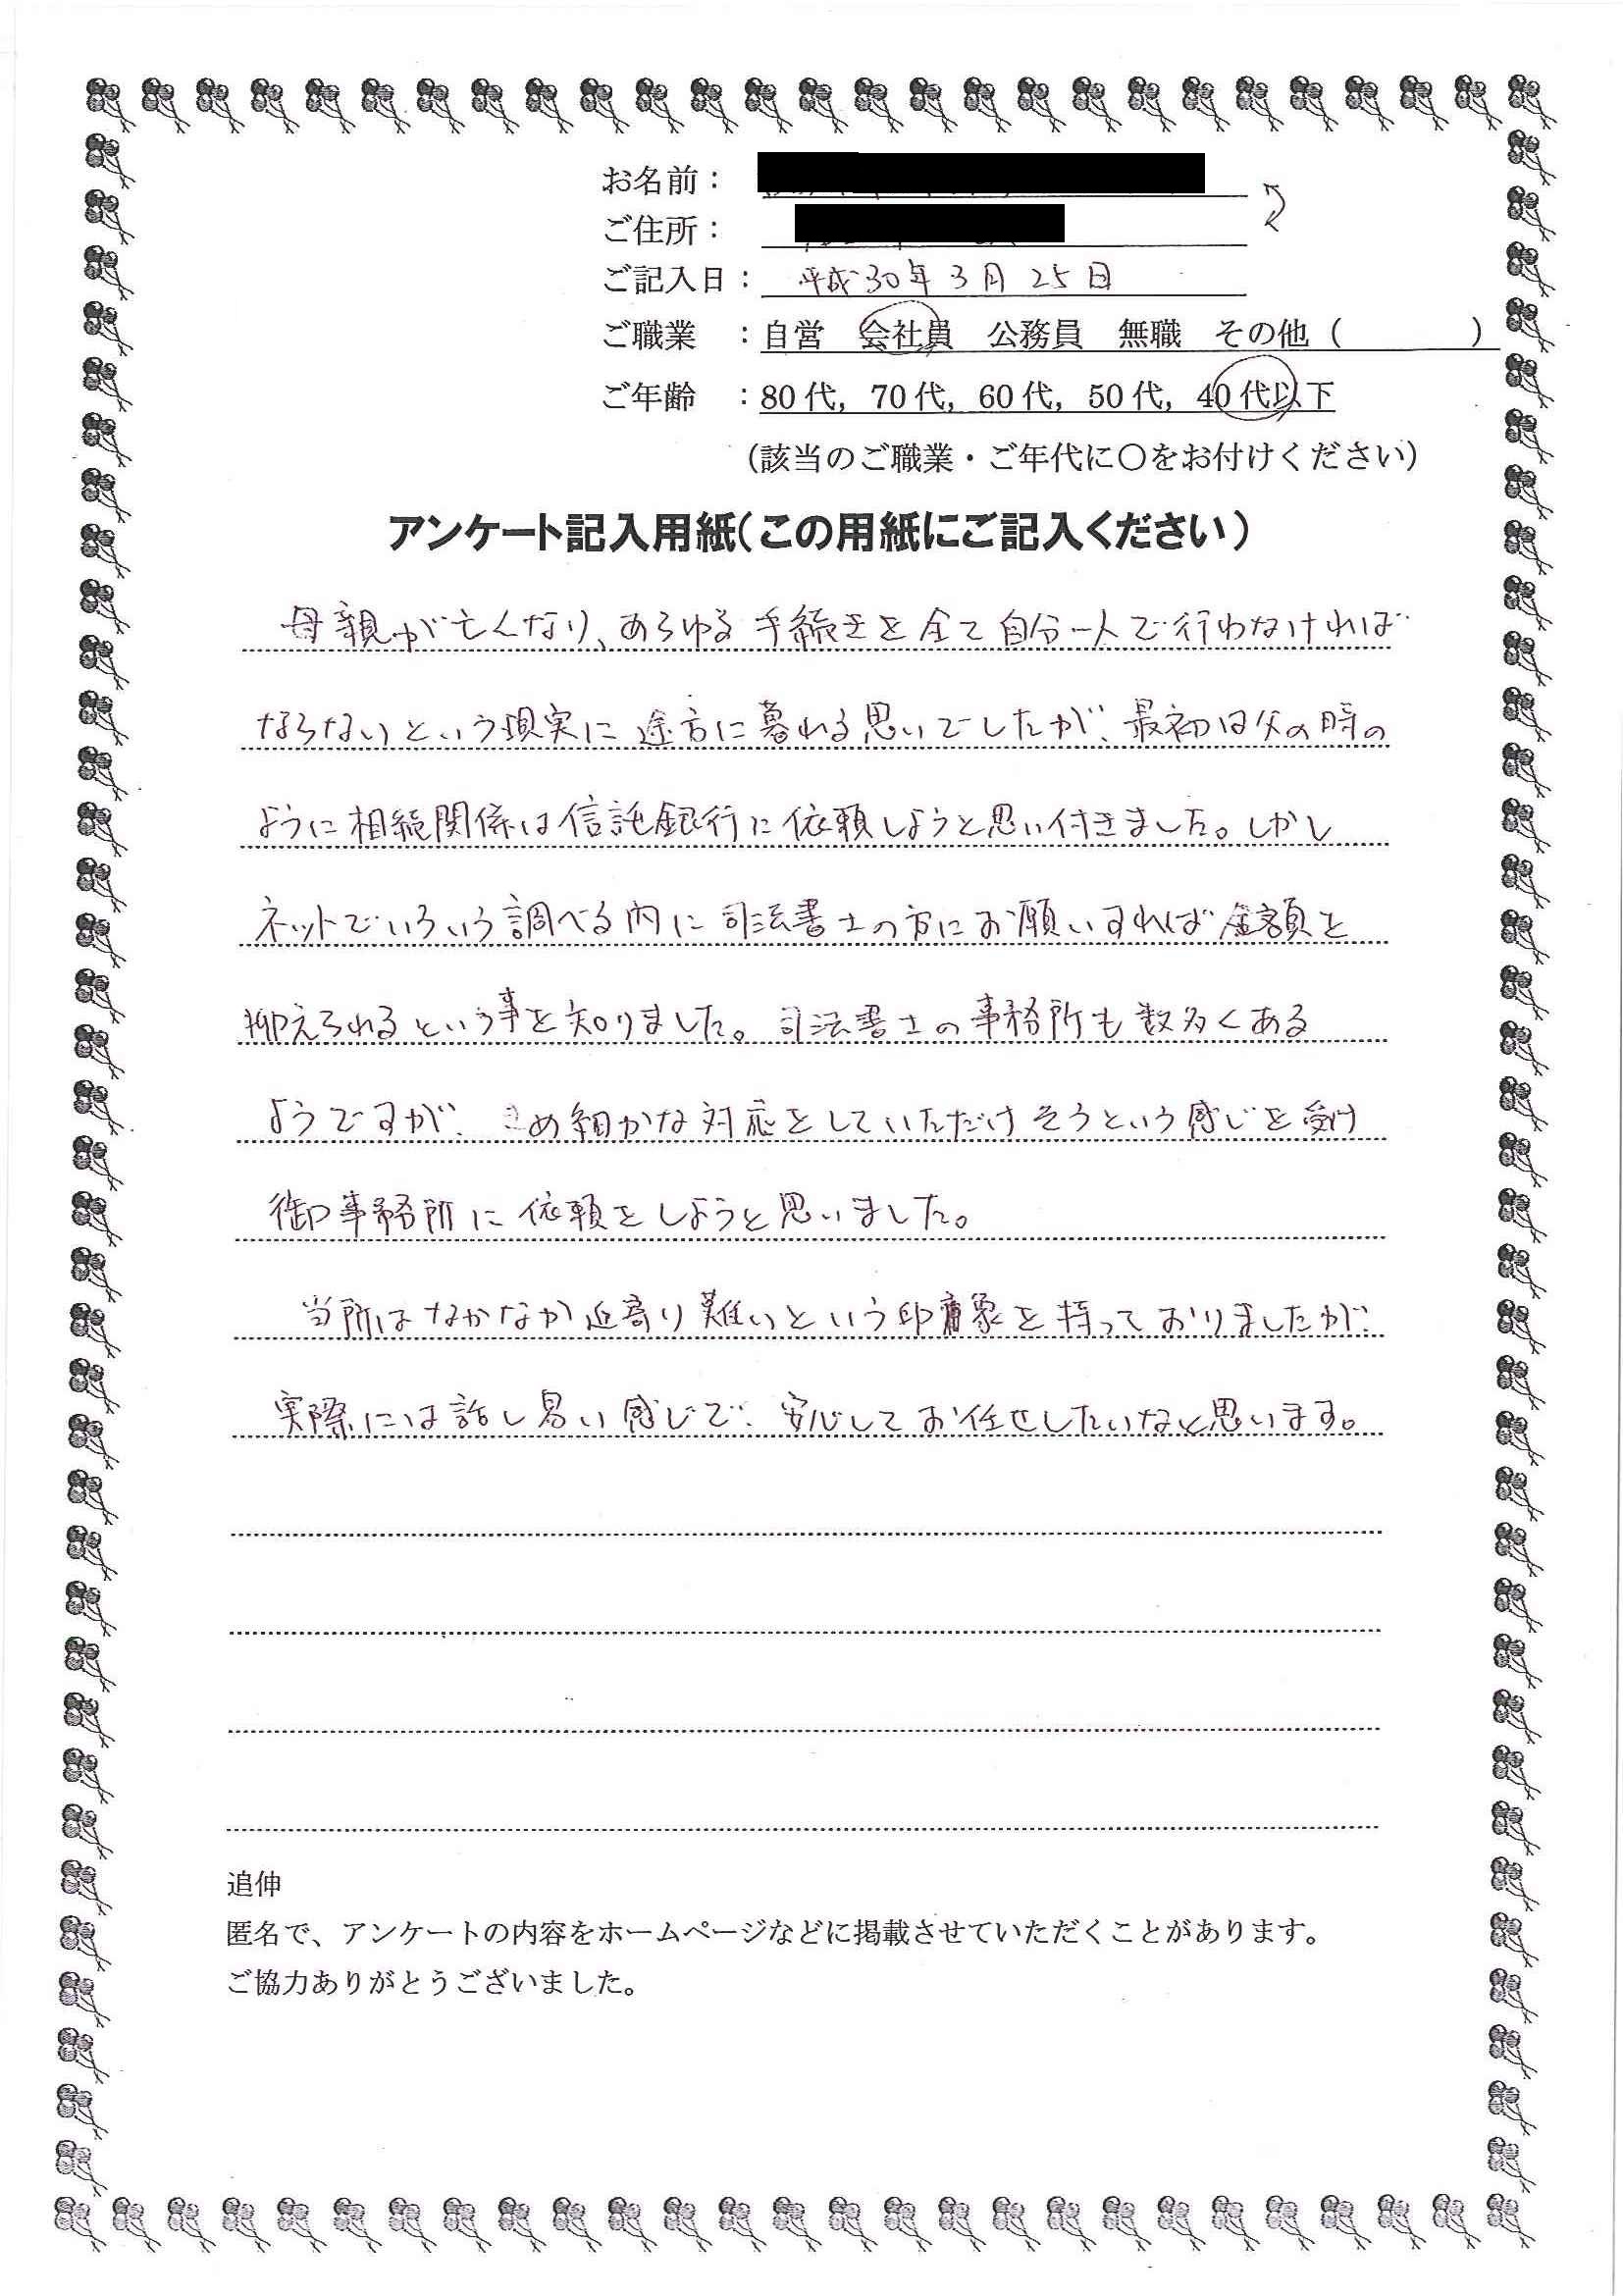 お名前：
ご住所：
ご記入日： 平成30年3月25日
ご職業　：自営　会社員　公務員　無職　その他（　　　　）
ご年齢　：80代，70代，60代，50代，40代以下
（該当のご職業・ご年代に○をお付けください）
アンケート記入用紙（この用紙にご記入ください）
母親が亡くなり、あらゆる手続きを全て自分一人で行わなければ
ならないという現実に途方に暮れる思いでしたが、最初は父の時の
ように相続関係は信託銀行に依頼しようと思い付きました。しかし
ネットでいろいろ調べる内に司法書士の方にお願いすれば金額を
抑えられるという事を知りました。司法書士の事務所も数多くある
ようですが、きめ細かな対応をしていただけそうという感じを受け
御事務所に依頼をしようと思いました。
当所はなかなか近寄り難いという印象を持っておりましたが、
実際には話し易い感じで、安心してお任せしたいなと思います。
追伸
匿名で、アンケートの内容をホームページなどに掲載させていただくことがあります。
ご協力ありがとうございました。